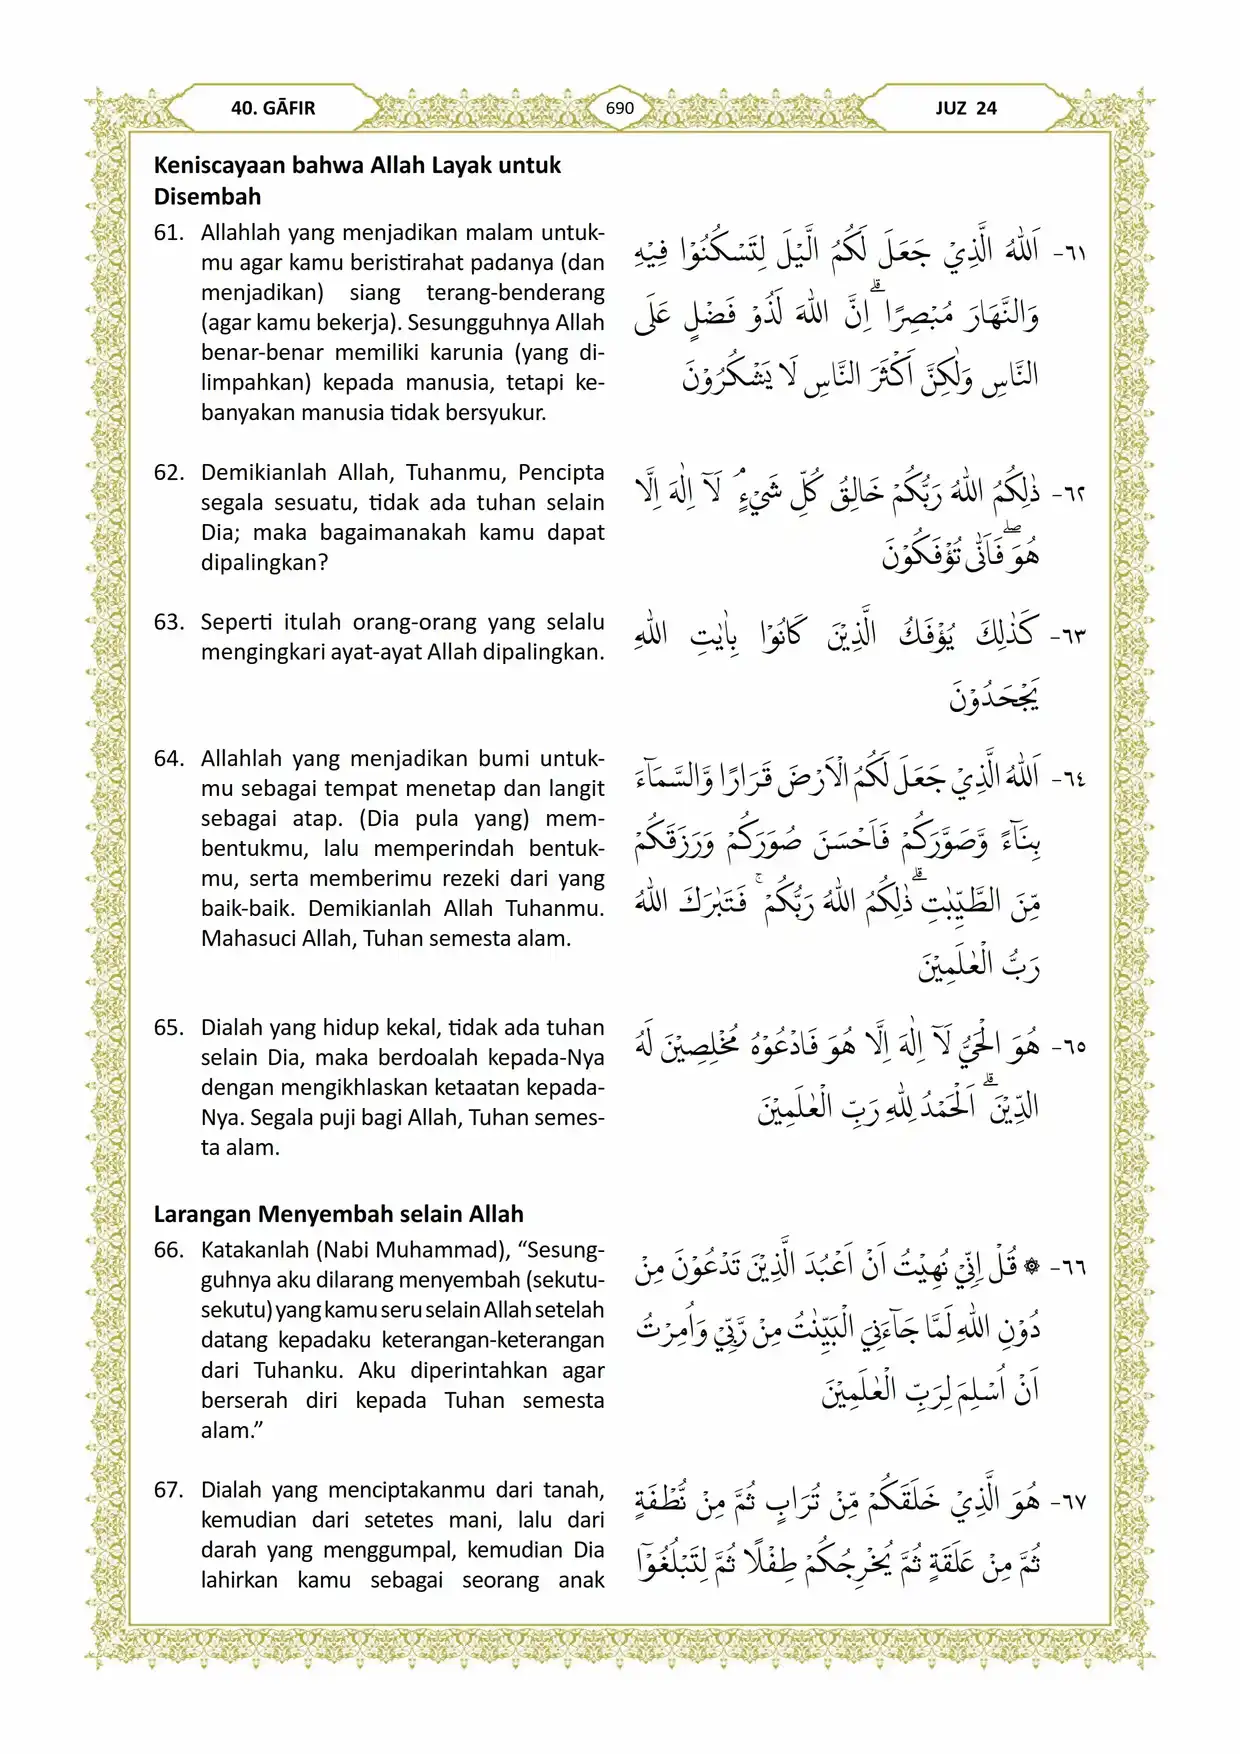 40. GĀFIR
690
JUZ 24
Keniscayaan bahwa Allah Layak untuk
Disembah
61. Allahlah yang menjadikan malam untuk-
mu agar kamu beristirahat padanya (dan
menjadikan) siang terang-benderang
(agar kamu bekerja). Sesungguhnya Allah
benar-benar memiliki karunia (yang di-
limpahkan) kepada manusia, tetapi ke-
banyakan manusia tidak bersyukur.
٦١- اَللّٰهُ الَّذِيْ جَعَلَ لَكُمُ الَّيْلَ لِتَسْكُنُوْا فِيْهِ
وَالنَّهَارَ مُبْصِرًا ۗاِنَّ اللّٰهَ لَذُوْ فَضْلٍ عَلَى
النَّاسِ وَلٰكِنَّ اَكْثَرَ النَّاسِ لَا يَشْكُرُوْنَ
62. Demikianlah Allah, Tuhanmu, Pencipta
segala sesuatu, tidak ada tuhan selain
Dia; maka bagaimanakah kamu dapat
dipalingkan?
٦٢- ذٰلِكُمُ اللّٰهُ رَبُّكُمْ خَالِقُ كُلِّ شَيْءٍ ۘ لَآ اِلٰهَ اِلَّا
هُوَ ۖفَاَنّٰى تُؤْفَكُوْنَ
63. Seperti itulah orang-orang yang selalu
mengingkari ayat-ayat Allah dipalingkan.
٦٣- كَذٰلِكَ يُؤْفَكُ الَّذِيْنَ كَانُوْا بِاٰيٰتِ اللّٰهِ
يَجْحَدُوْنَ
64. Allahlah yang menjadikan bumi untuk-
mu sebagai tempat menetap dan langit
sebagai atap. (Dia pula yang) mem-
bentukmu, lalu memperindah bentuk-
mu, serta memberimu rezeki dari yang
baik-baik. Demikianlah Allah Tuhanmu.
Mahasuci Allah, Tuhan semesta alam.
٦٤- اَللّٰهُ الَّذِيْ جَعَلَ لَكُمُ الْاَرْضَ قَرَارًا وَّالسَّمَاۤءَ
بِنَاۤءً وَّصَوَّرَكُمْ فَاَحْسَنَ صُوَرَكُمْ وَرَزَقَكُمْ
مِّنَ الطَّيِّبٰتِ ۗذٰلِكُمُ اللّٰهُ رَبُّكُمْ ۚ فَتَبٰرَكَ اللّٰهُ
رَبُّ الْعٰلَمِيْنَ
65. Dialah yang hidup kekal, tidak ada tuhan
selain Dia, maka berdoalah kepada-Nya
dengan mengikhlaskan ketaatan kepada-
Nya. Segala puji bagi Allah, Tuhan semes-
ta alam.
٦٥- هُوَ الْحَيُّ لَآ اِلٰهَ اِلَّا هُوَ فَادْعُوْهُ مُخْلِصِيْنَ لَهُ
الدِّيْنَ ۗ اَلْحَمْدُ لِلّٰهِ رَبِّ الْعٰلَمِيْنَ
Larangan Menyembah selain Allah
66. Katakanlah (Nabi Muhammad), “Sesung-
guhnya aku dilarang menyembah (sekutu-
sekutu) yang kamu seru selain Allah setelah
datang kepadaku keterangan-keterangan
dari Tuhanku. Aku diperintahkan agar
berserah diri kepada Tuhan semesta
alam.”
٦٦- ۞ قُلْ اِنِّيْ نُهِيْتُ اَنْ اَعْبُدَ الَّذِيْنَ تَدْعُوْنَ مِنْ
دُوْنِ اللّٰهِ لَمَّا جَاۤءَنِيَ الْبَيِّنٰتُ مِنْ رَّبِّيْ وَاُمِرْتُ
اَنْ اُسْلِمَ لِرَبِّ الْعٰلَمِيْنَ
67. Dialah yang menciptakanmu dari tanah,
kemudian dari setetes mani, lalu dari
darah yang menggumpal, kemudian Dia
lahirkan kamu sebagai seorang anak
٦٧- هُوَ الَّذِيْ خَلَقَكُمْ مِّنْ تُرَابٍ ثُمَّ مِنْ نُّطْفَةٍ
ثُمَّ مِنْ عَلَقَةٍ ثُمَّ يُخْرِجُكُمْ طِفْلًا ثُمَّ لِتَبْلُغُوْٓا